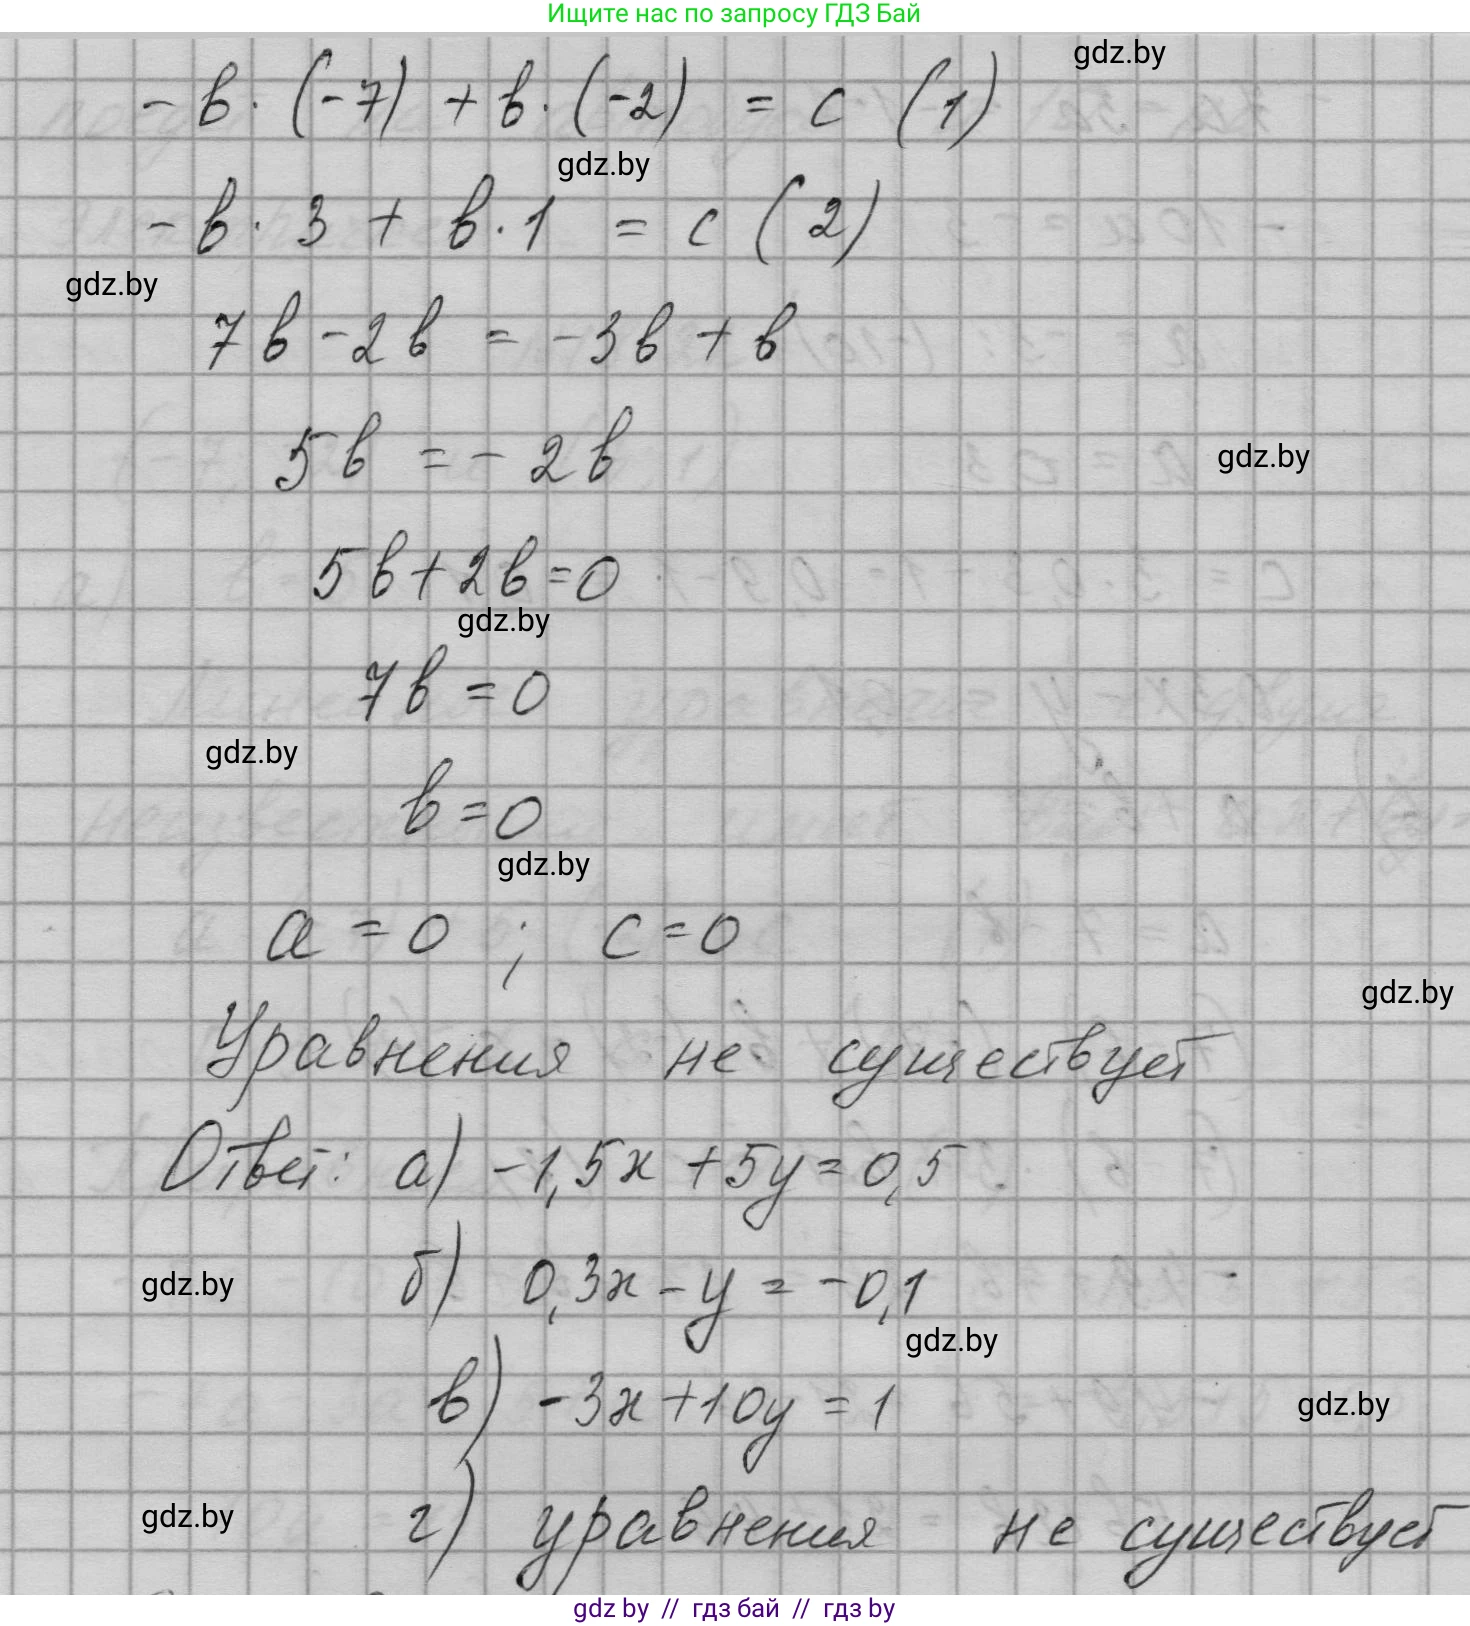 Ищите нас по запросу ГДЗ Бай
gdz.by
- в · (-7) + в · (-2) = с (1)
gdz.by
- в · 3 + в · 1 = с (2)
gdz.by
7в - 2в = -3в + в
5в = - 2в
gdz.by
5в + 2в = 0
gdz.by
7в = 0
gdz.by
в = 0
gdz.by
а = 0 ; с = 0
gdz.by
Уравнения не существует
Ответ: а) -1,5х + 5у = 0,5
б) 0,3х - у = -0,1
gdz.by
gdz.by
в) -3х + 10у = 1
gdz.by
г) уравнения не существует
gdz.by
gdz by // гдз бай // гдз by